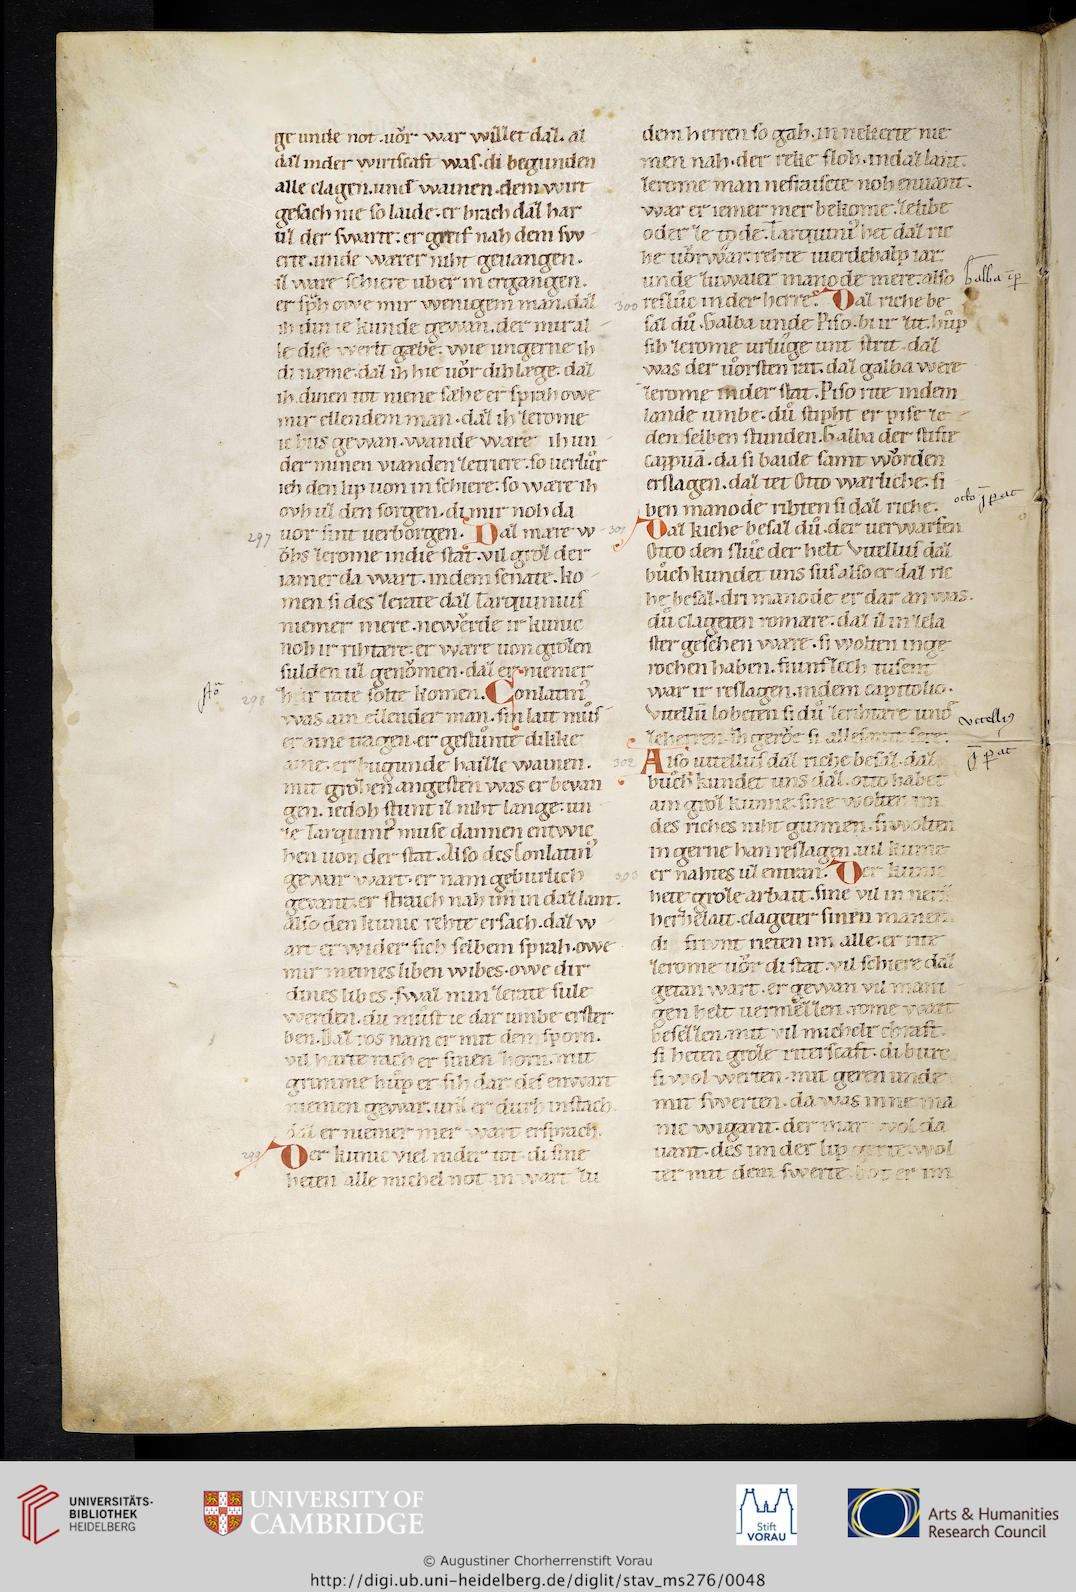 ge unde not. uͦor war willet daz. al
daz inder wirtscaft was. di begunden
alle clagen. unde wainen. dem wirt
gesach nie so laide. er brach daz har
uz der swarte. er greif nah dem sw
erte. unde wærer niht geuangen.
iz wære schiere uber in ergangen.
er sph owe mir wenigem man. daz
ih din ie kunde gewan. der mir al
le dise werlt gæbe. wie ungerne ih
di næme. daz ih hie uͦor dih læge. daz
ih dinen tot niene sæhe er sprah owe
mir ellendem man. daz ih ze rome
ie hus gewan. wande wære ih un
der minen vianden zetriere. so uerlur
ich den lip uon in schiere. so wære ih
ovh uz den sorgen. di mir noh da
297 uor sint uerborgen. Daz mære w
ohs ze rome in die stat. vil groz der
iamer da wart. in dem senate. ko
men si des ze rate daz Tarquinius
niemer mere. newrde ir kunic
noh ir rihtære. er wære uon grozen
sulden uz genomen. daz er niemer
298 hin ze rate solte komen. Conlatin9
was ain ellender man. sin lait mus
er aine tragen. er gestunte dikke
aine. er bugunde haizze wainen.
mit grozen angesten was er bevan
gen. iedoh stunt iz niht lange. un
ze Tarquini9 muse dannen entwic
hen uon der stat. Also des Conlatin9
gewar wart. er nam geburlich
gewant. er straich nah im in daz lant.
also den kunic rehte ersach. daz w
art er wider sich selbem sprah. owe
mir meines liben wibes. owe dir
dines libes. swaz min ze rate sule
werden. du must ie dar umbe erster
ben. Daz ros nam er mit dem sporn.
vil harte rach er sinen zorn. mit
grimme hup er sih dar des enwart
niemen gewar. unz er durh in stach
daz er niemer mer wart ersprach.
299 Der kunic viel nider tot. di sine
heten alle michel not in wart zu
dem herren so gah. in nekerte nie
men nah. der reke floh. in daz lant.
ze rome man nefraiscte noh enuant.
war er iemer mer bekome. ze libe
oder ze tode. Tarquini9 het daz ric
he uͦor war. rehte uierdehalp iar.
unde zuwaier manode mere. also
300 resluc in der herre. Daz riche be
galba
saz du. Galba unde Piso. bi ir zit. hup
sih ze rome urluge unt strit. daz
was der uorsten rat. daz galba were
ze rome in der stat. Piso rite in dem
lande umbe. du stipht er pise ze
den selben stunden. Galba der stifte
cappua. da si baide samt worden
erslagen. daz tet Otto wærliche. si
ben manode rihten si daz riche.
otto
301 Daz riche besaz du. der verwarfen
Otto den sluc der helt Vitellus daz
buch kundet uns sus also er daz ric
he besaz. dri manode er dar an was.
du clageten romære. daz iz in ze la
ster geschen wære. si wolten inge
rochen haben. fiunf zech tusent
war ir reslagen. in dem capitolio.
vitelli9
Vitellu lobeten si du ze rihtære und
ze herren. ih gerde si alle samt sere.
302 Also uitellus daz riche besaz. daz
buch kundet uns daz. otto habet
ain groz kunne. sine wolten im
des riches niht gunnen. si wolten
in gerne han reslagen. uil kume
303 er nahtes uz entran. Der kunic
hete groze arbait. sine vil in
herzelait. clageter sinen manen.
di friunt rieten im alle. er rite
ze rome uor di stat. vil schiere daz
getan wart. er gewan vil mani
gen helt uermezzen. rome wart
besezzen. mit vil michelr chraft.
si heten groze riterscaft. di burc
si wol werten. mit geren unde
mit swerten. da was inne ma
nic wigant. der mar wol da
uant. des im der lip gerte. wol
ter mit dem swerte. bot er im
UNIVERSITÄTS-
BIBLIOTHEK
HEIDELBERG
UNIVERSITY OF
CAMBRIDGE
Stift
VORAU
Arts & Humanities
Research Council
© Augustiner Chorherrenstift Vorau
http://digi.ub.uni-heidelberg.de/diglit/stav_ms276/0048